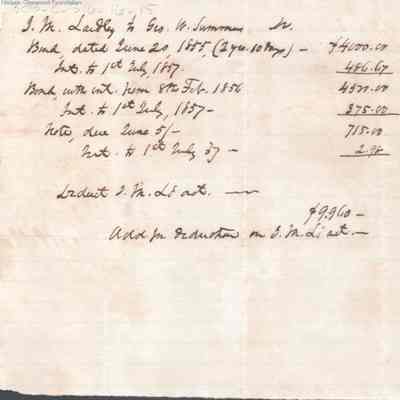 Historic Glenwood Foundation
J. M. Laidley to Geo. W. Summers Dr.
Bond dated June 20, 1855, (2 yrs. 10 days) — $4000.00
Int. to 1st July, 1857. 486.67
Bond, with int. from 8th Feb. 1856 4500.00
Int. to 1st July, 1857 — 375.00
Note, due June 5/— 715.00
Int. to 1st July 57 — 2.98
Deduct J. M. L's act. —
$9.960 —
Add for deduction on J. M. L's act. —